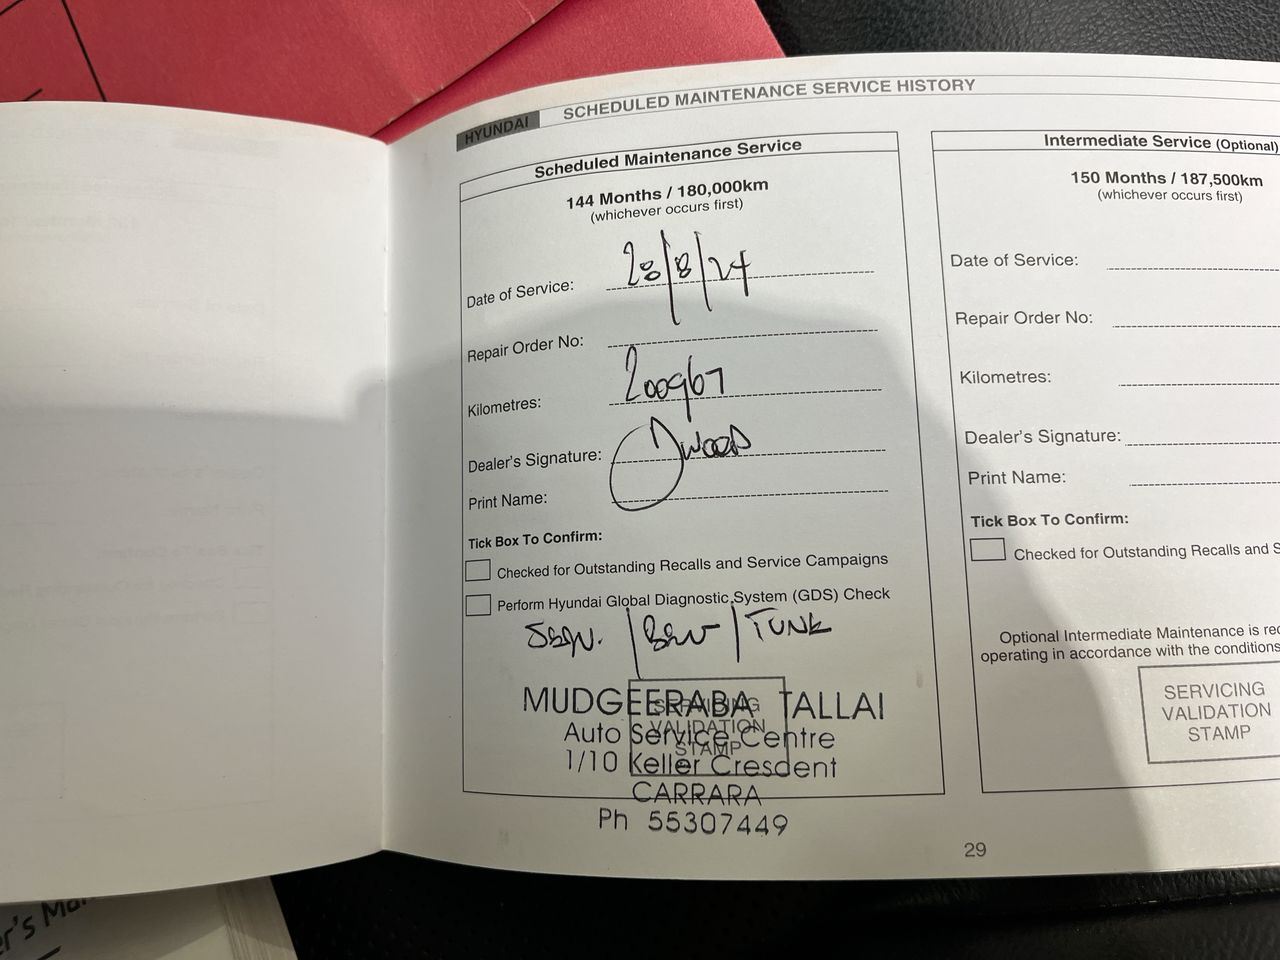 HYUNDAI SCHEDULED MAINTENANCE SERVICE HISTORY
Scheduled Maintenance Service
144 Months / 180,000km
(whichever occurs first)
Date of Service: 28/8/24
Repair Order No:
Kilometres: 200967
Dealer's Signature: Jwood
Print Name:
Tick Box To Confirm:
Checked for Outstanding Recalls and Service Campaigns
Perform Hyundai Global Diagnostic System (GDS) Check
TUNE
SERVICING
VALIDATION
STAMP
MUDGEERABA TALLAI
Auto Service Centre
1/10 Keller Cresdent
CARRARA
Ph 55307449
Intermediate Service (Optional)
150 Months / 187,500km
(whichever occurs first)
Date of Service:
Repair Order No:
Kilometres:
Dealer's Signature:
Print Name:
Tick Box To Confirm:
Checked for Outstanding Recalls and S
Optional Intermediate Maintenance is
operating in accordance with the conditions
SERVICING
VALIDATION
STAMP
29